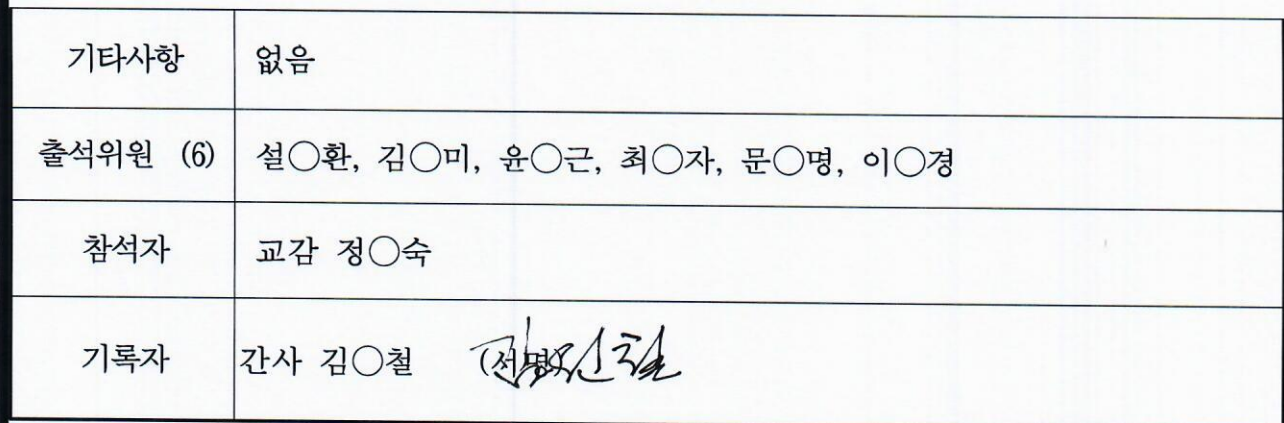 기타사항 없음
출석위원 (6) 설○환, 김○미, 윤○근, 최○자, 문○명, 이○경
참석자 교감 정○숙
기록자 간사 김○철 (서명)